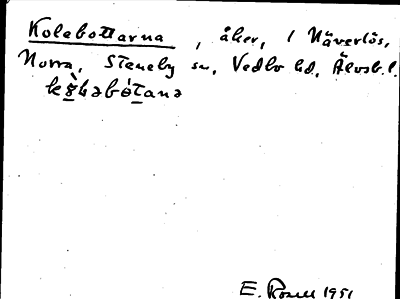 Kolabottarna, åker, 1 Näverlös,
Norra, Steneby sn, Vedbo hd, Älvsb. l.
E. Rosell 1951